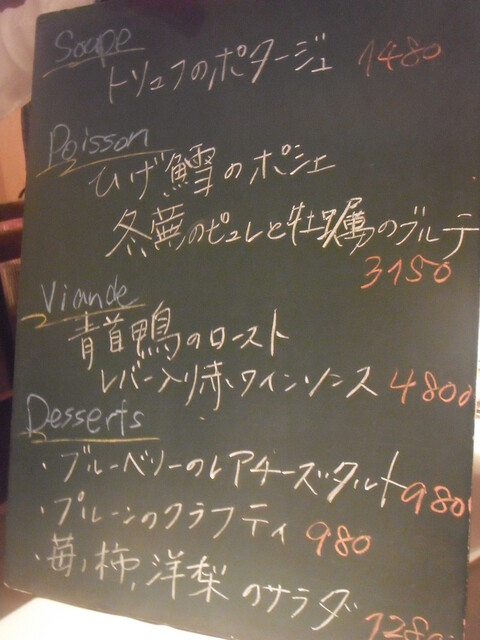 Soupe
トリュフのポタージュ 1480
Poisson
ひげ鱈のポシェ
冬蕪のピュレと牡蠣のブルテ
3150
Viande
青首鴨のロースト
レバー入り赤ワインソース 4800
Desserts
・ブルーベリーのレアチーズタルト 980
・プルーンのクラフティ 980
・苺、柿、洋梨のサラダ 1280